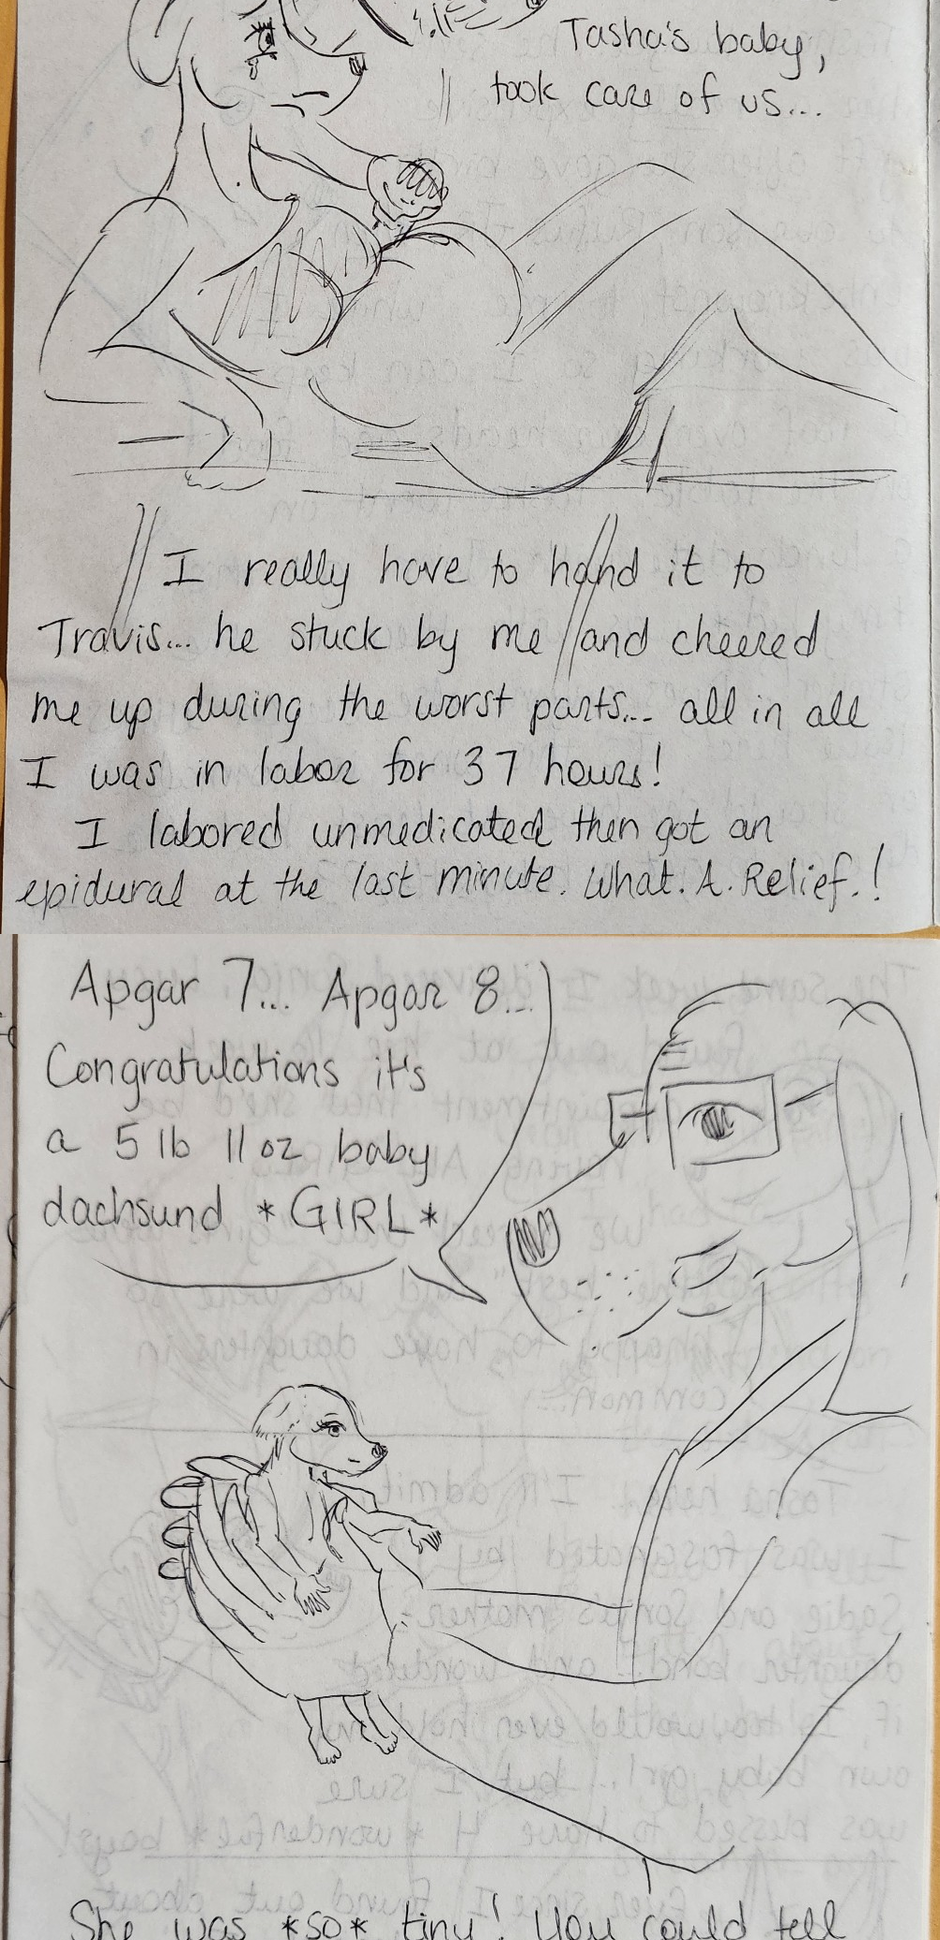 Tasha's baby,
took care of us...
I really have to hand it to
Travis... he stuck by me and cheered
me up during the worst parts... all in all
I was in labor for 37 hours!
I labored unmedicated then got an
epidural at the last minute. What. A. Relief.!
Apgar 7... Apgar 8...
Congratulations it's
a 5 lb 11 oz baby
dachsund *GIRL*
She was *so* tiny! You could tell